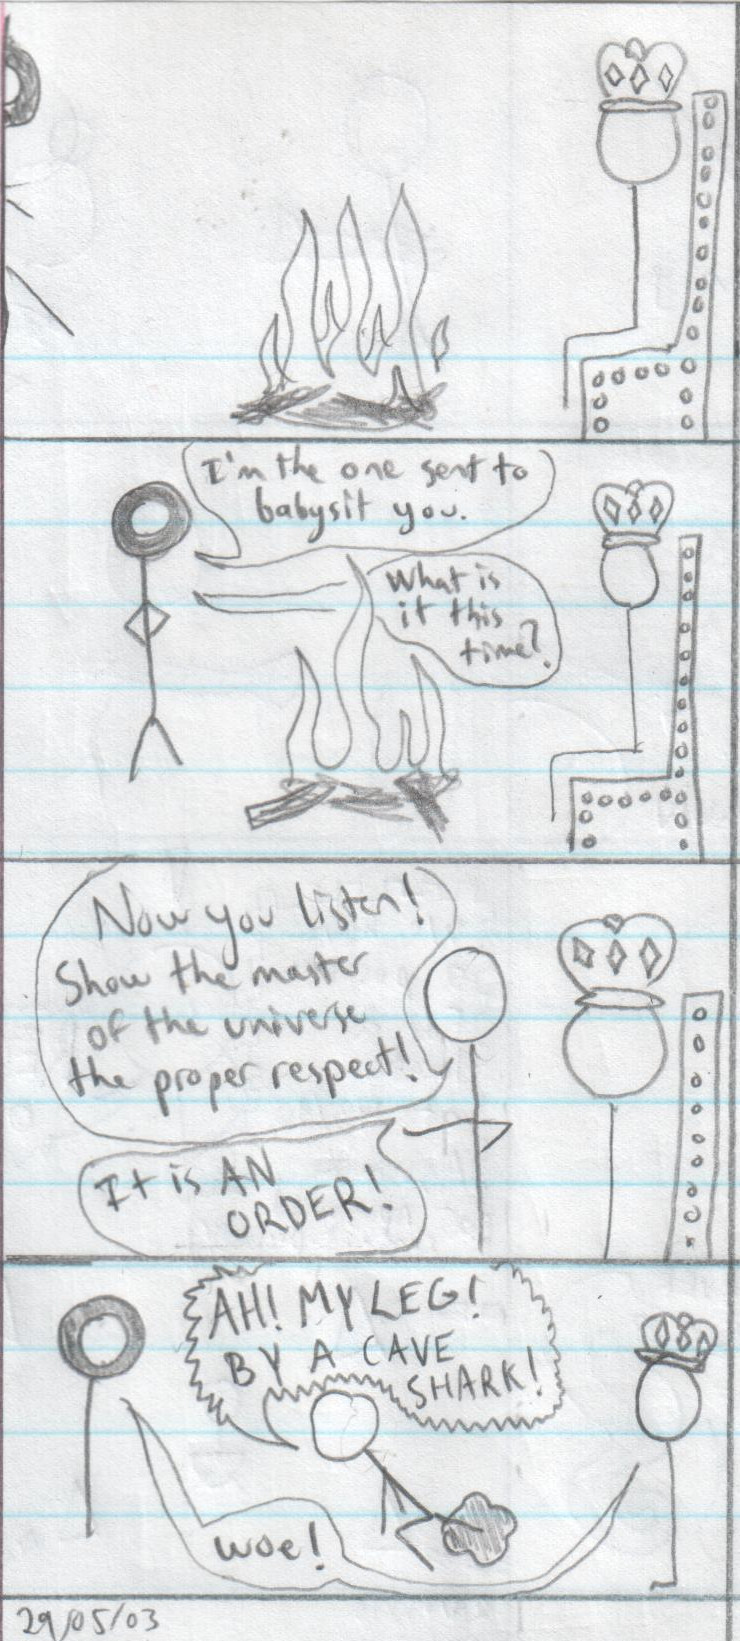 I'm the one sent to
babysit you.
What is
it this
time?
Now you listen!
Show the master
of the universe
the proper respect!
It is AN
ORDER!
AH! MY LEG!
BY A CAVE
SHARK!
woe!
29/05/03